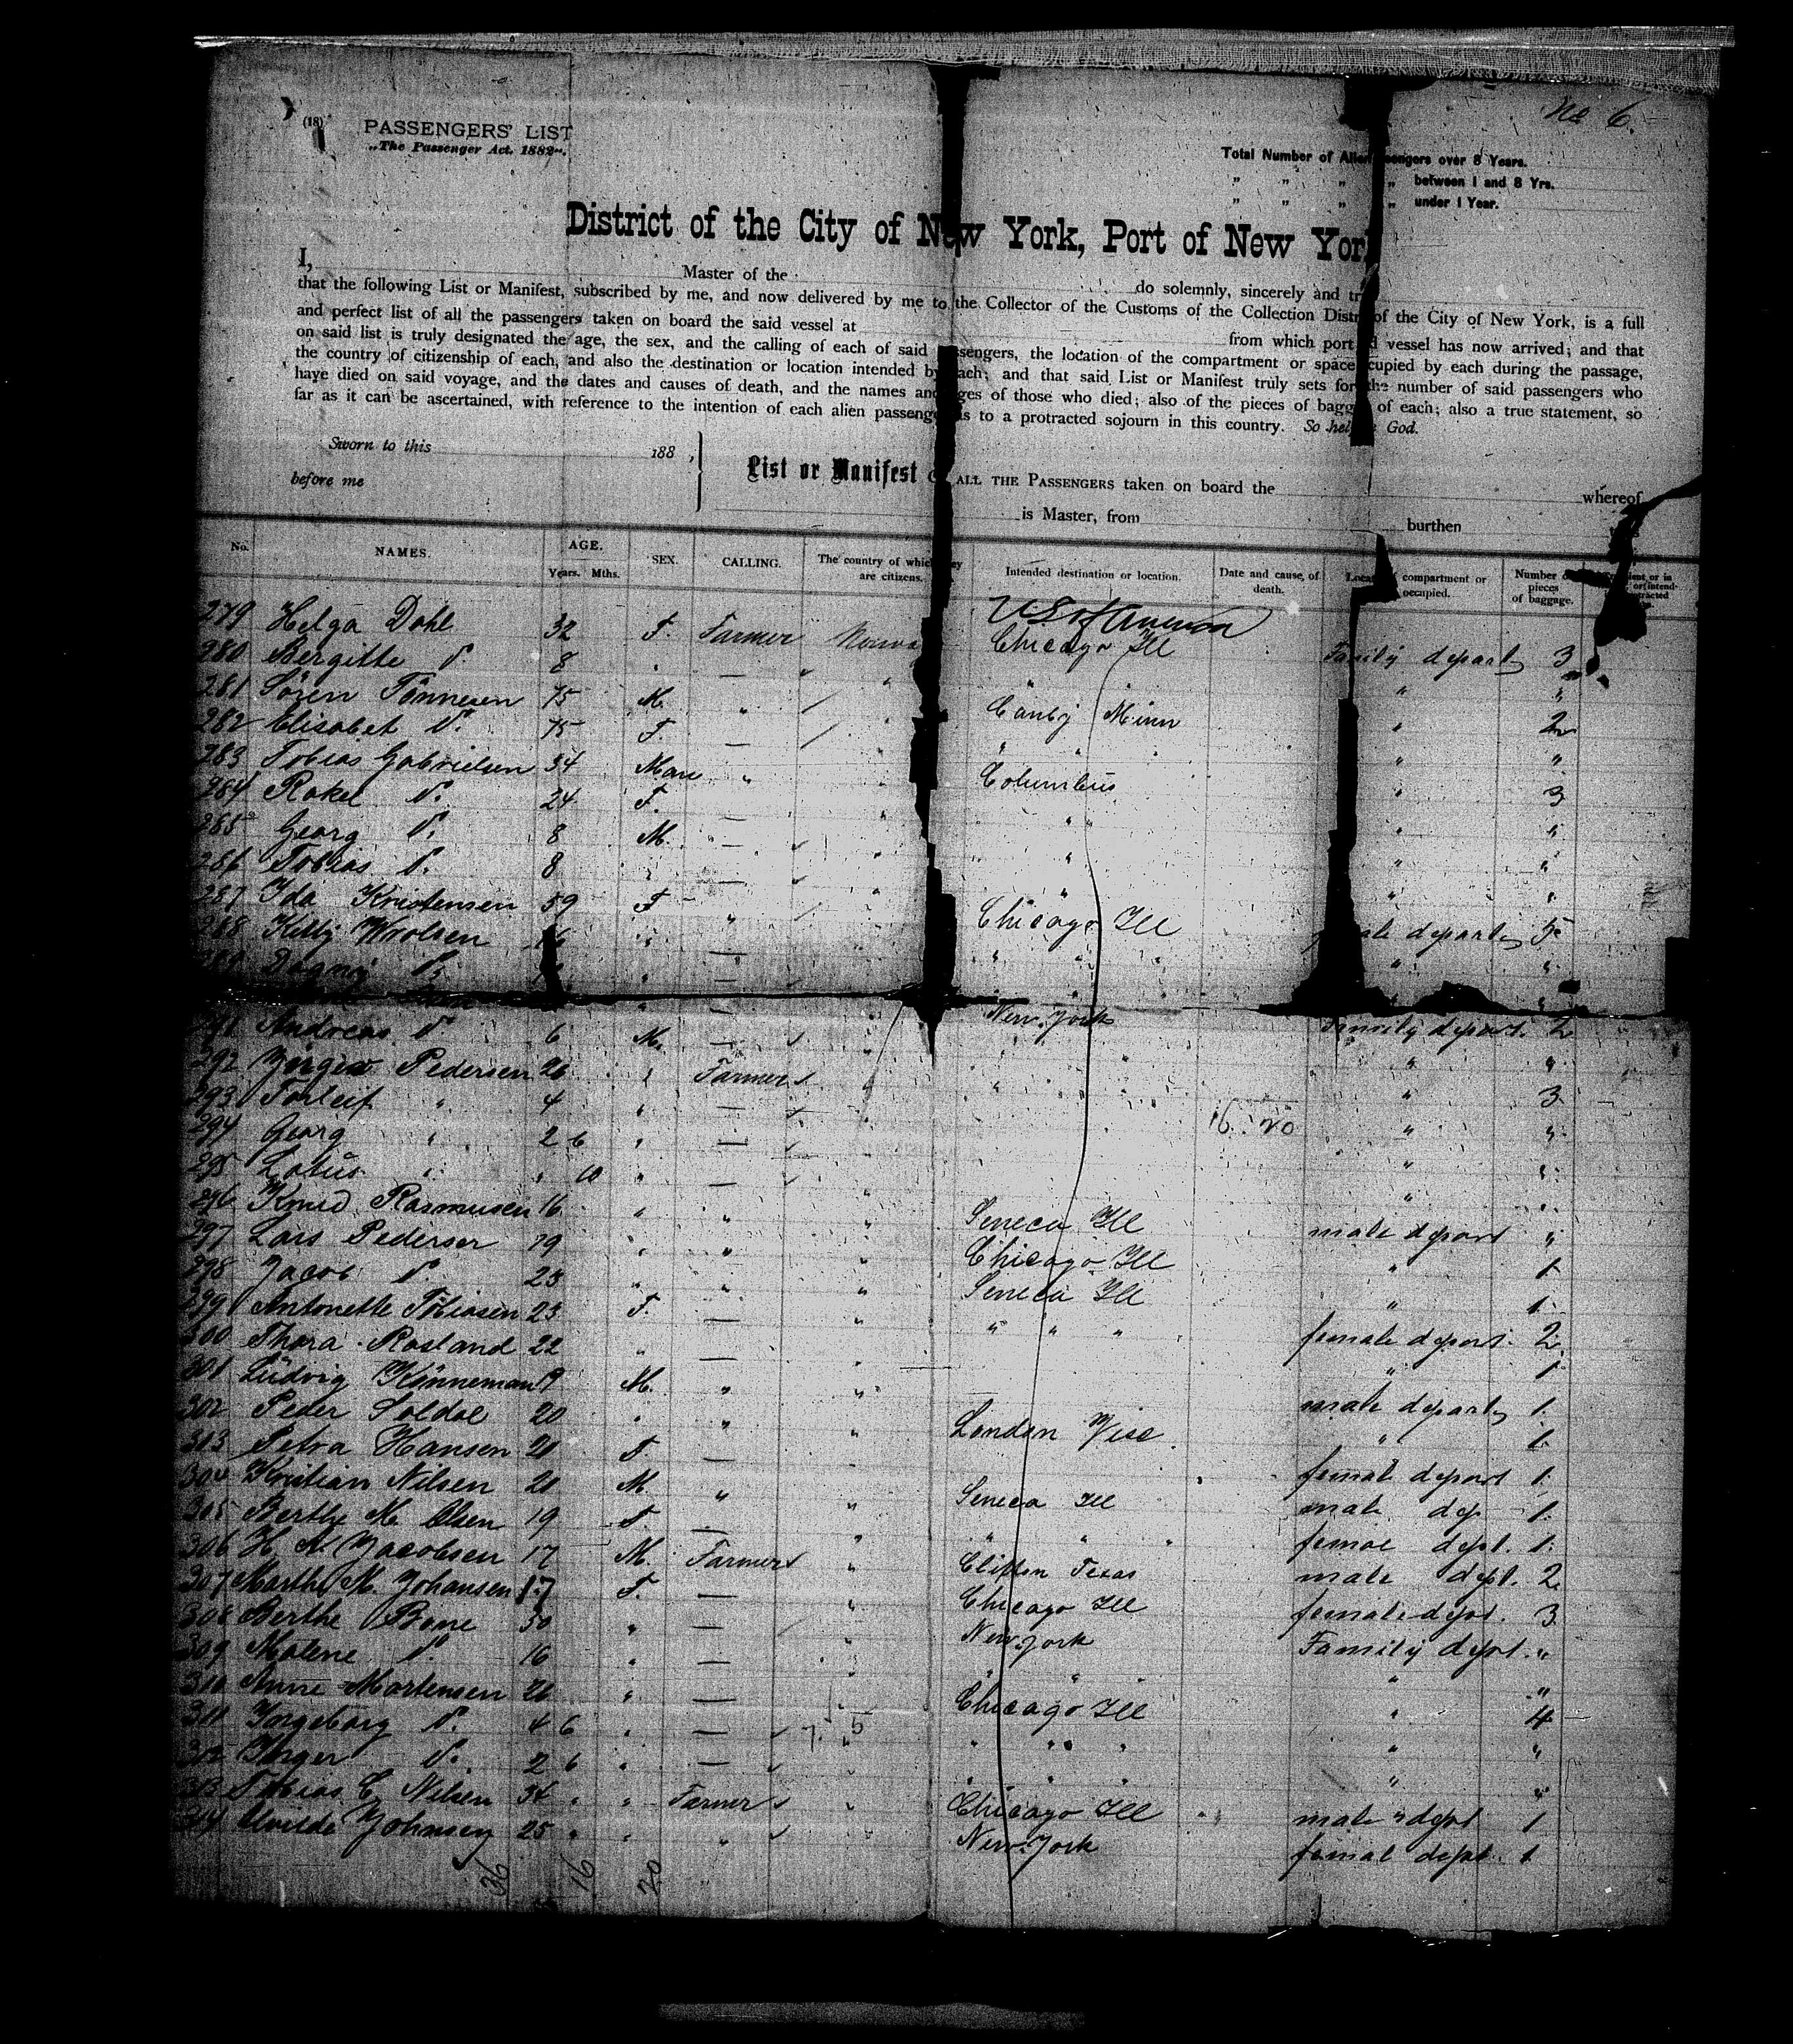 No 6.
(18)
PASSENGERS' LIST
„The Passenger Act. 1882".
Total Number of Alien Passengers over 8 Years.
„ „ „ „ between 1 and 8 Yrs.
„ „ „ „ under 1 Year.
District of the City of New York, Port of New York
I, Master of the do solemnly, sincerely and tr
that the following List or Manifest, subscribed by me, and now delivered by me to the Collector of the Customs of the Collection District of the City of New York, is a full
and perfect list of all the passengers taken on board the said vessel at from which port vessel has now arrived; and that
on said list is truly designated the age, the sex, and the calling of each of said passengers, the location of the compartment or space occupied by each during the passage,
the country of citizenship of each, and also the destination or location intended by each; and that said List or Manifest truly sets forth the number of said passengers who
have died on said voyage, and the dates and causes of death, and the names and ages of those who died; also of the pieces of baggage of each; also a true statement, so
far as it can be ascertained, with reference to the intention of each alien passenger as to a protracted sojourn in this country. So help God.
Sworn to this 188 ,
before me
List or Manifest OF ALL THE PASSENGERS taken on board the whereof
is Master, from burthen
No. NAMES. AGE. Years. Mths. SEX. CALLING. The country of which they are citizens. Intended destination or location. Date and cause of death. compartment or occupied. Number of pieces of baggage.
279 Helga Dahl 32 F. Farmer Chicago Ill Family depart 3
280 Bergitte D. 8 " — " " "
281 Sören Tönnesen 75 M. " " Canby Minn " 2
282 Elisabet D. 75 F. — " " " "
283 Tobias Gabrielsen 34 Man " " Columbus " 3
284 Rakel D. 24 F. — " " " "
285 Georg D. 8 M. — " " " "
286 Tobias D. 8 " — " " " "
287 Ida Kristensen 59 F " Chicago Ill depart 5
288 Kitty Wrolsen " — " " " " "
Dagny D. " — " "
New York Family depart. 2
291 Andreas D 6 M. — " " "
292 Pedersen 26 " Farmer " " " 3
293 Torleif " 4 " — " " "
16. 20
294 Georg " 2 6 " — " "
295 " " 10 " — " "
296 Knud Rasmusen 16 " " " Seneca Ill male depart "
297 Lars Pedersen 19 " " " Chicago Ill " 1
298 Jacob D. 25 " " " Seneca Ill " 1
299 Antonette Tobiasen 23 F. — " " " " female depart. 2
300 Thora Rosland 22 " — " 1
301 Ludvig 19 M. " " male depart 1
302 Peder 20 " " " London Wisc " 1
303 Petra Hansen 20 F — female depart 1
304 Kristian Nilsen 20 M. " " Seneca Ill male dep 1
305 Berthe M. Olsen 19 F — " " " " dept. 1
306 H N Jacobsen 17 M. Farmer " Clifton Texas male dept. 2
307 Marthe M. Johansen 17 F. — " Chicago Ill female dept. 3
308 Berthe Bone 50 " — " New York Family dept. "
309 Malene D. 16 " — " " " "
310 Anne Martensen 26 " — " Chicago Ill " 4
311 Ingeborg D. 4 6 " — 7. 5 " " " " "
312 D. 2 6 " — " " " " "
313 Tobias C. Nilsen 34 " " Farmer " Chicago Ill male dept 1
314 Johnsen 25 " " " New York dept. 1
36 16 20